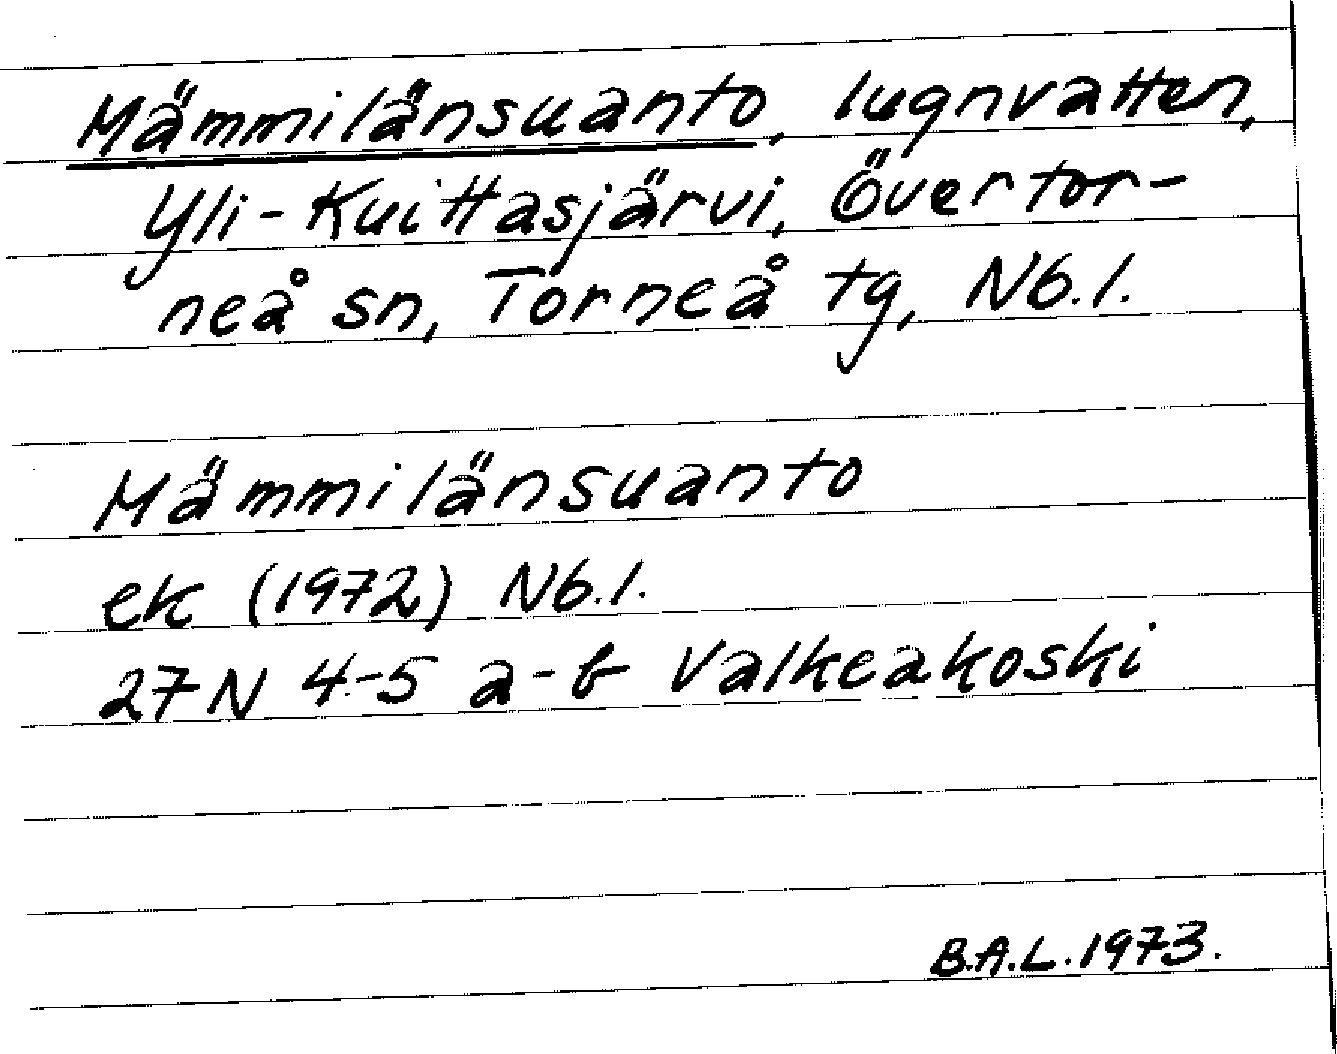 Mämmilänsuanto, lugnvatten,
Yli-Kuittasjärvi, Övertor-
neå sn, Torneå tg, Nb.l.
Mämmilänsuanto
ek (1972) Nb.l.
27N 4-5 a-b Valkeakoski
B.A.L. 1973.